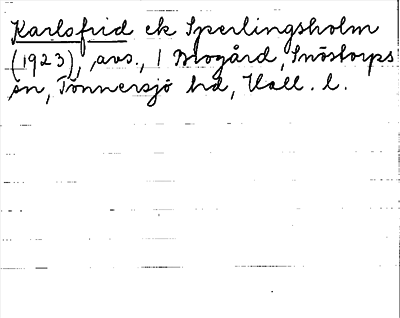 Karlsfrid ek Sperlingsholm
(1923), avs., 1 Mogård, Snöstorps
sn, Tönnersjö hd, Hall. l.